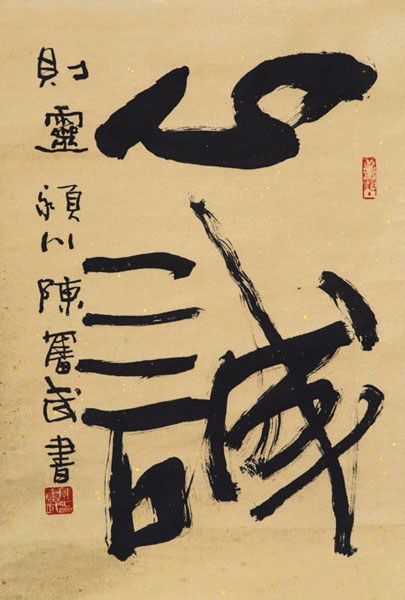 心誠
則靈潁川陳奮武書